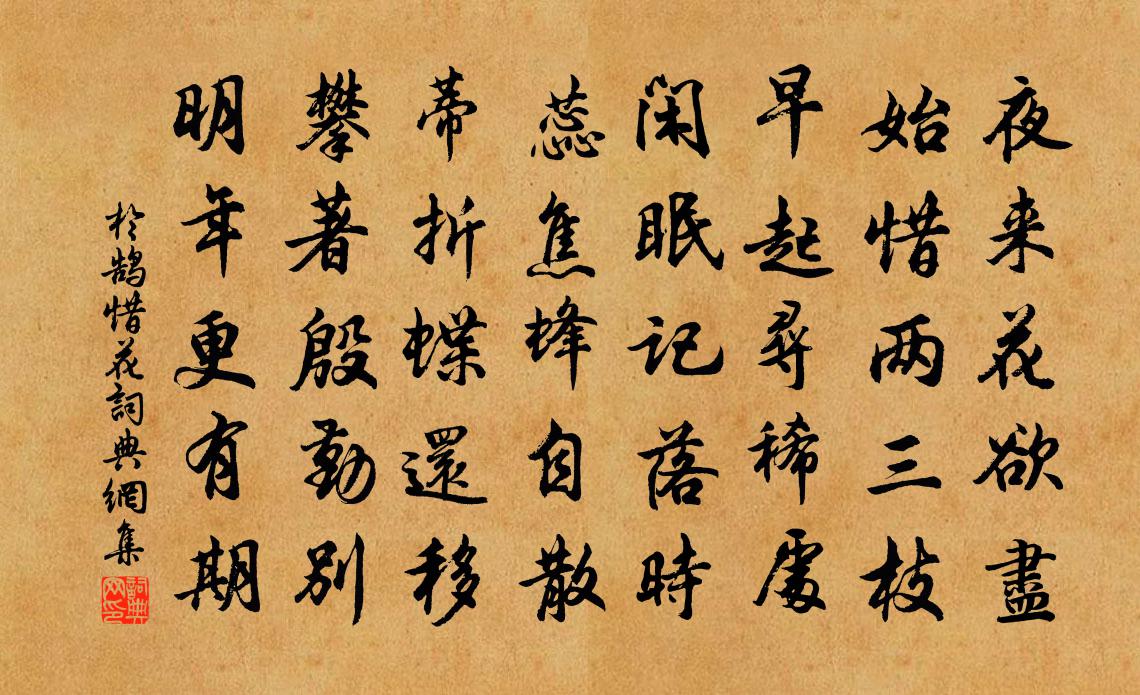 夜来花欲盡
始惜两三枝
早起尋稀處
闲眠記落時
蕊焦蜂自散
蒂折蝶還移
攀著殷勤別
明年更有期
於鵠惜花詞典網集
詞典网印